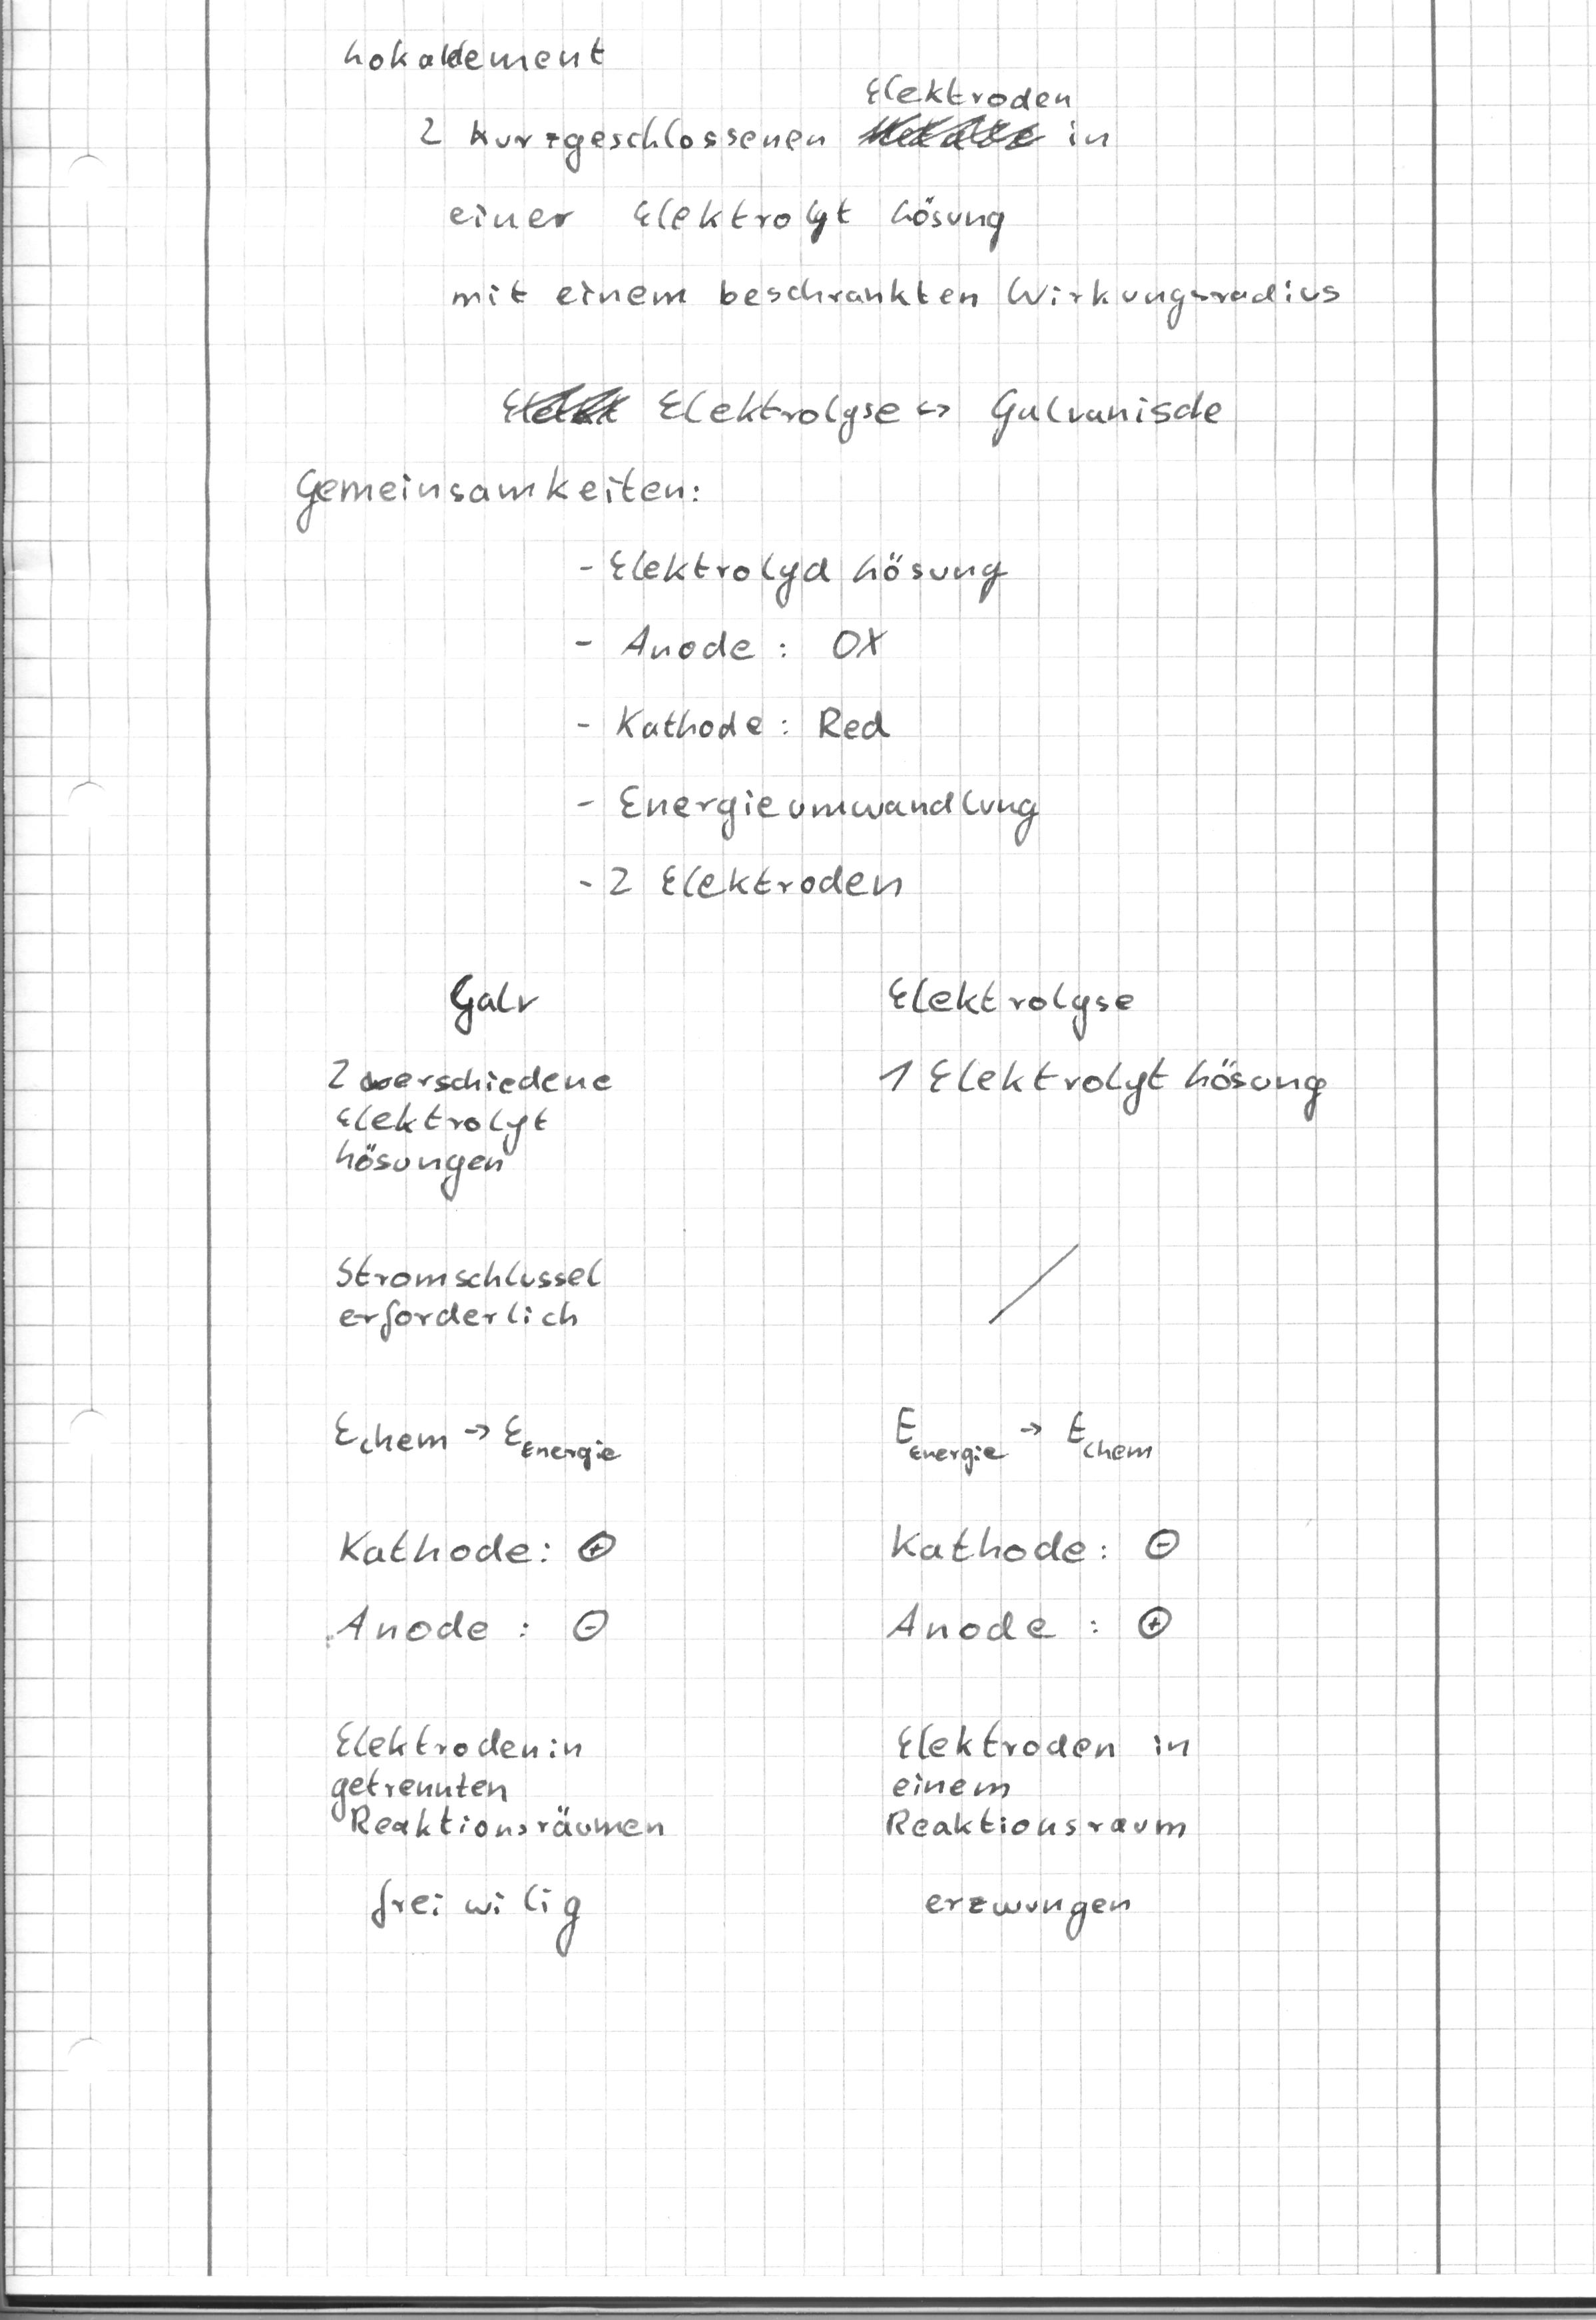 Lokalelement
Elektroden
2 kurzgeschlossenen in
einer Elektrolyt Lösung
mit einem beschrankten Wirkungsradius
Elektrolyse <-> Galvanische
Gemeinsamkeiten:
- Elektrolyd Lösung
- Anode : OX
- Kathode : Red
- Energieumwandlung
- 2 Elektroden
Galv Elektrolyse
2 verschiedene 1 Elektrolyt Lösung
Elektrolyt
Lösungen
Stromschlussel /
erforderlich
Echem → EEnergie EEnergie → Echem
Kathode: ⊕ Kathode: ⊖
Anode : ⊖ Anode : ⊕
Elektroden in Elektroden in
getrennten einem
Reaktionsräumen Reaktionsraum
freiwilig erzwungen